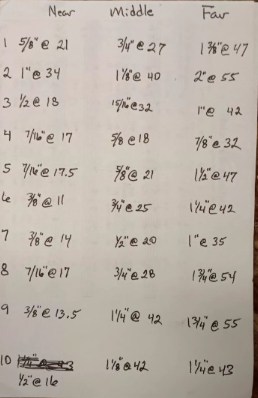 Near Middle Far
1 5/8" @ 21 3/4" @ 27 1 3/8" @ 47
2 1" @ 34 1 1/8" @ 40 2" @ 55
3 1/2 @ 18 15/16" @ 32 1" @ 42
4 7/16" @ 17 5/8 @ 18 7/8" @ 32
5 7/16" @ 17.5 5/8" @ 21 1 1/2" @ 47
6 3/8" @ 11 3/4" @ 25 1 1/4" @ 42
7 3/8" @ 14 1/2" @ 20 1" @ 35
8 7/16" @ 17 3/4" @ 28 1 3/4" @ 54
9 3/8" @ 13.5 1 1/4" @ 42 1 3/4" @ 55
10 1 1/8" @ 42 1 1/4" @ 43
1/2" @ 16